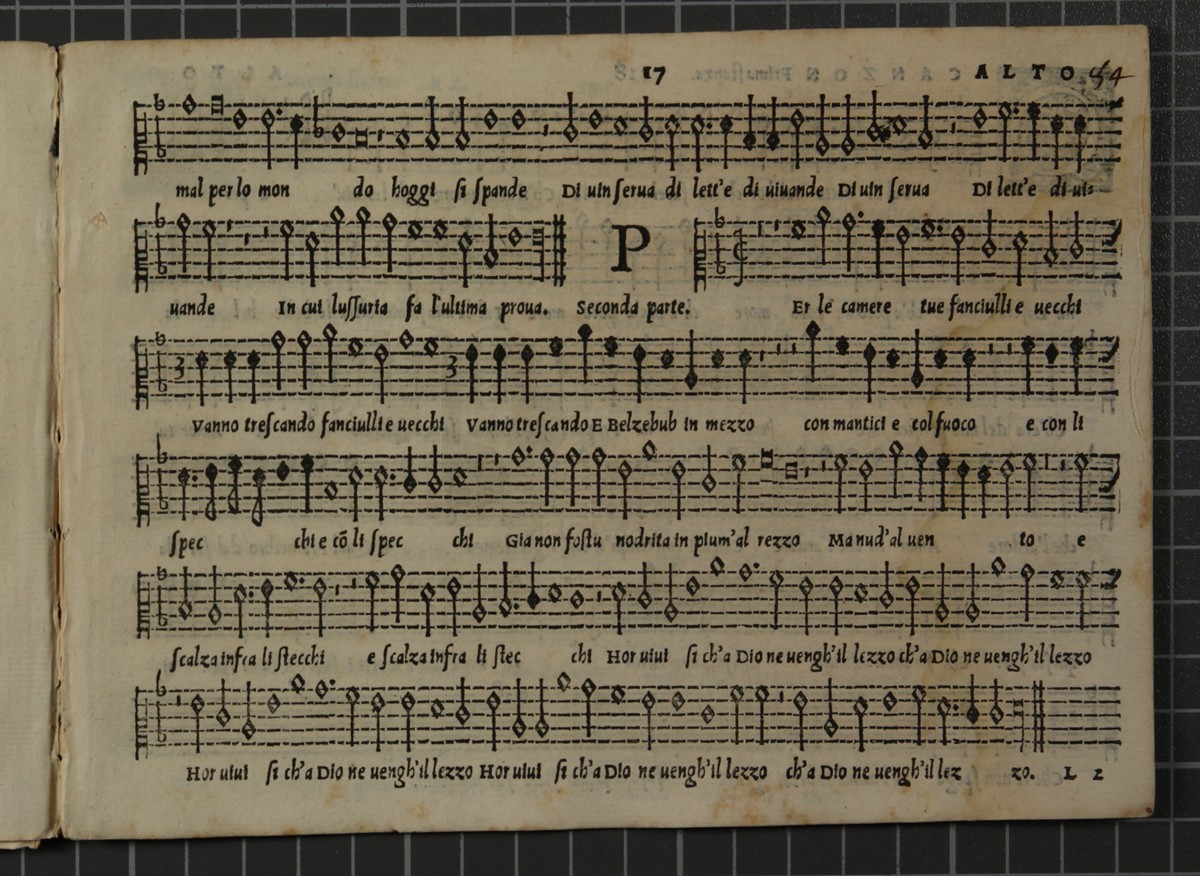 17 ALTO 54
mal per lo mon do hoggi ſi ſpande Di uin ſerua di lett'e di uiuande Di uin ſerua Di lett'e di uı=
uande In cui luſſuria fa l'ultima proua. Seconda parte. P Er le camere tue fanciulli e uecchi
Vanno treſcando fanciulli e uecchi Vanno treſcando E Belzebub in mezzo con mantici e col fuoco e con li
ſpec chi e cõ li ſpec chi Gia non foſtu nodrita in pium'al rezzo Ma nud'al uen to e
ſcalza infra li ſtecchi e ſcalza infra li ſtec chi Hor uiui ſi ch'a Dio ne uengh'il lezzo ch'a Dio ne uengh'il lezzo
Hor uiui ſi ch'a Dio ne uengh'il lezzo Hor uiui ſi ch'a Dio ne uengh'il lezzo ch'a Dio ne uengh'il lez zo. L 2